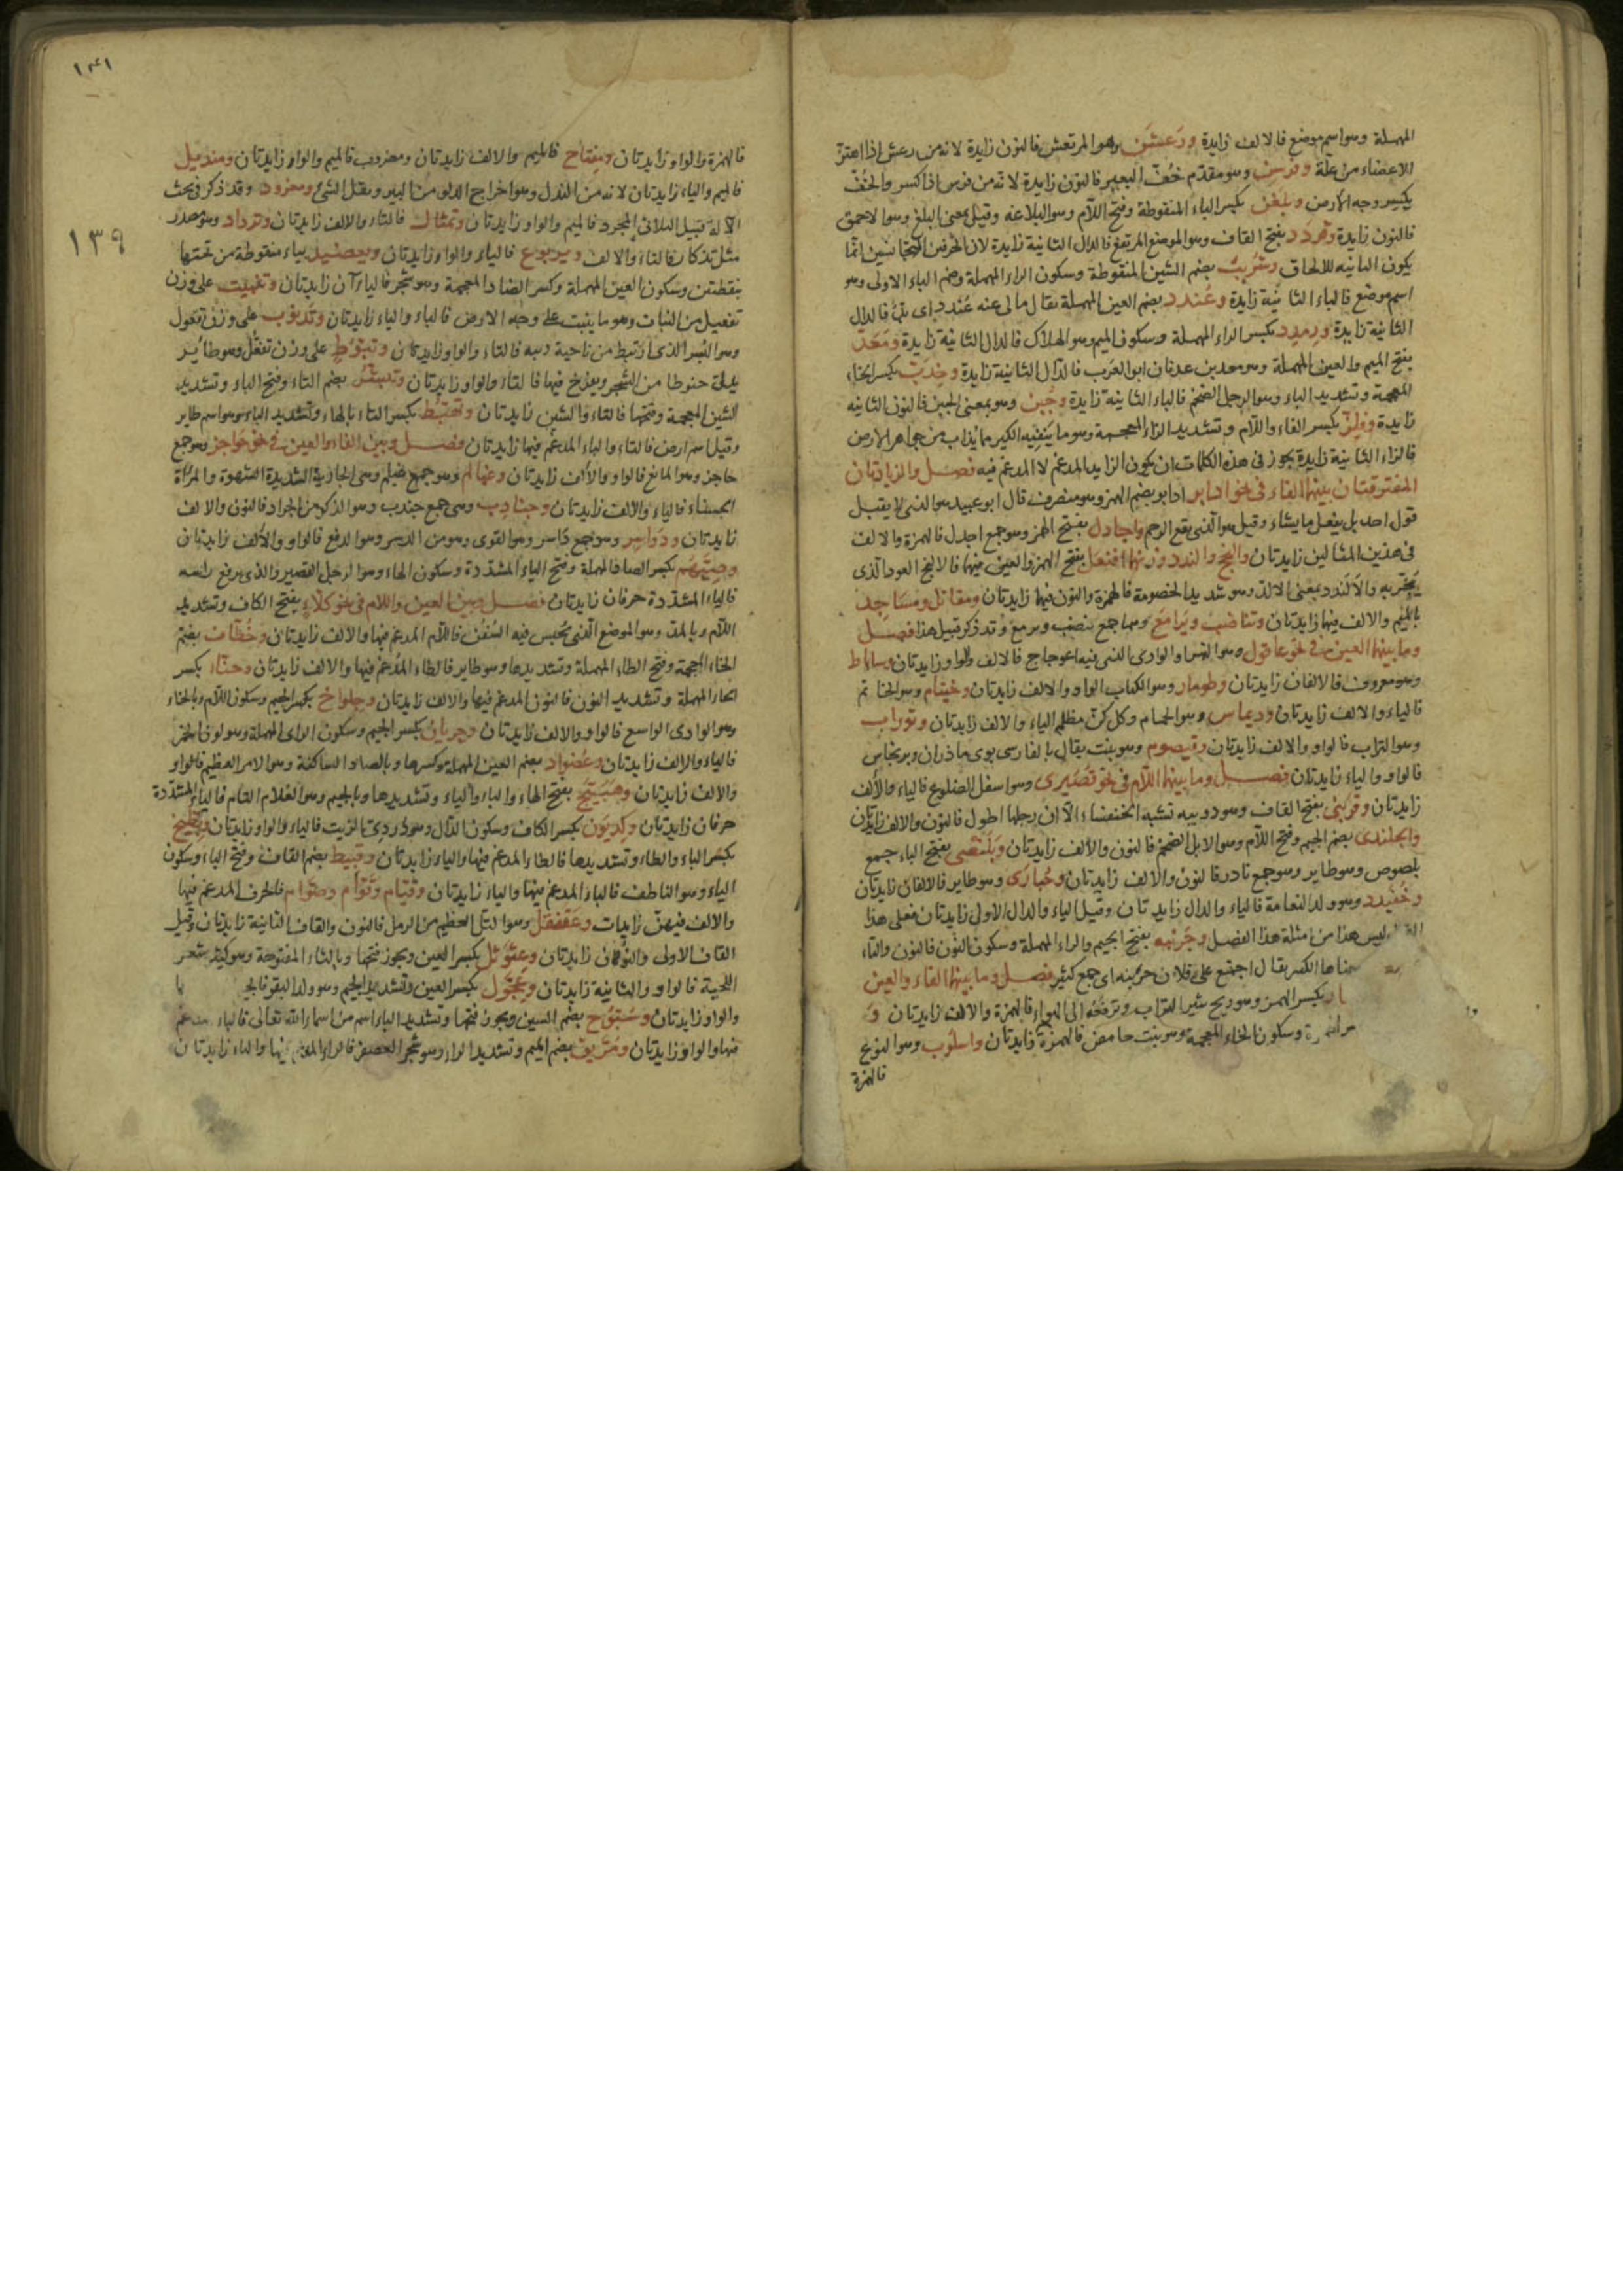 المهملة وهو اسم موضع فالالف زايدة ورَعشَن وهو المرتعش فالنون زايدة لانه من رعش اذا اهتز
الاعضاء من علة وفرسن وهو مقدّم خُفّ البعير فالنون زايدة لانه من فرس اذا كسر والخُفّ
يكسر وجه الارض وبلغن بكسر الباء المنقوطة وفتح اللام وهو البلاغة وقيل بمعنى البلغ وهو الاحمق
فالنون زايدة وقردَد بفتح القاف وهو الموضع المرتفع فالدال الثانية زايدة لان الحرفين المتجانسين انما
يكون الثانيه للالحاق وشُربُب بضم الشين المنقوطة وسكون الراء المهملة وضم الباء الاولى وهو
اسم موضع فالباء الثانية زايدة وعُندد بضم العين المهملة يقال مالى عنه عُندد اى بدّ فالدال
الثانية زايدة ورمدد بكسر الراء المهملة وسكون الميم وهو الهلاك فالدال الثانية زايدة ومَعَدّ
بفتح الميم والعين المهملة وهو معد بن عدنان ابو العَرَب فالدال الثانية زايدة وخِدَبّ بكسر الخاء
المعجمة وتشديد الباء وهو الرجل الضخم فالباء الثانية زايدة وجُبُن وهو بمعنى الجبن فالنون الثانيه
زايدة وفِلِزّ بكسر الفاء واللام وتشديد الزاء المعجمة وهو ما ينفيه الكير مما يذاب من جواهر الارض
فالزاء الثانية زايدة يجوز فى هذه الكلمات ان يكون الزايد المدغم لا المدغم فيه فصل والزيادتان
المفترقتان بينهما الفاء فى نحو ادابر ادابر بضم الهمز وهو منصرف قال ابو عبيد هو الذى لا يقبل
قول احد بل يفعل ما يشاء وقيل هو الذى يقع الرحم واجادل بفتح الهمز وهو جمع اجدل فالهمزة والالف
فى هذين المثالين زايدتان والنجج والندد وزنهما افنعل بفتح الهمز والعين فيهما فالالنجج العود الذى
يتبخر به والالندد بمعنى الالد وهو شديد الخصومة فالهمزة والنون فيهما زايدتان ومقاتل ومسَاجِد
بالميم والالف فيهما زايدتان وتناضب ويَرَامَع وهما جمع تنضب ويرمع وقد ذكر قبيل هذا فصل
وما بينهما العين فى نحو عاقول وهو النهر والوادى الذى فيه اعوجاج فالالف والواو زايدتان وساباط
وهو معروف فالالفان زايدتان وطومار وهو الكتاب الواو والالف زايدتان وخيتام وهو الخاتم
فالياء والالف زايدتان وديماس وهو الحمام وكل كنّ مظلم الياء والالف زايدتان وتوراب
وهو التراب فالواو والالف زايدتان وقيصوم وهو نبت يقال بالفارسى بوى ماذران وبرنجاس
فالواو والياء زايدتان فصل وما بينهما اللام فى نحو قصَيرى وهو اسفل الضلوع فالياء والالف
زايدتان وقرنبى بفتح القاف وهو دويبه تشبه الخنفساء الا ان رجلها اطول فالنون والالف زايدتان
والجلندى بضم الجيم وفتح اللام وهو الابل الضخم فالنون والالف زايدتان وبَلَنصَى بفتح الباء جمع
بلصوص وهو طاير وهو جمع نادر فالنون والالف زايدتان وحُبارى وهو طاير فالالفان زايدتان
وخَفَيدَد وهو ولد النعامة فالياء والدال زايدتان وقيل الياء والدال الاول زايدتان فعلى هذا
ليس هذا من امثلة هذا الفصل وجَرَنبه بفتح الجيم والراء المهملة وسكون النون فالنون والتاء
معناها الكثير يقال اجتمع على فلان جرنبه اى جمع كثير فصل وما بينهما الفاء والعين
بكسر الهمز وهو ريح يثير التراب وترفعه الى الهواء فالهمزة والالف زايدتان و
وسكون الخاء المعجمة وهو نبت حامض فالهمزة زايدتان واسلوب وهو النوع
فالهمزة
١٤١
١٣٩
فالهمزة والواو زايدتان ومِفتاح فالميم والالف زايدتان ومضروب فالميم والواو زايدتان ومنديل
فالميم والياء زايدتان لانه من الندل وهو اخراج الدلو من البير ونقل الشئ ومغرود وقد ذكر فى بحث
الآلة قبيل الثلاثى المجرد فالميم والواو زايدتان وتمثال فالتاء والالف زايدتان وترداد وهو مصدر
مثل تذكار فالتاء والالف ويربوع فالياء والواو زايدتان ويعضيد بياء منقوطة من تحتها
بنقطتين وسكون العين المهملة وكسر الضاد المعجمة وهو شجر فالياءان زايدتان وتنبيت على وزن
تفعيل من النبات وهو ما ينبت على وجه الارض فالتاء والياء زايدتان وتَدنوب على وزن تفعول
وهو البُسر الذى ارطب من ناحية ذنبه فالتاء والواو زايدتان وتنوّط على وزن تفعّل وهو طائر
يدلى خيوطا من الشجر ويفرخ فيها فالتاء والواو زايدتان وتبشّر بضم التاء وفتح الباء وتشديد
الشين المعجمة وفتحها فالتاء والشين زايدتان وتهبّط بكسر التاء بالهاء وتشديد الباء وهو اسم طاير
وقيل اسم ارض فالتاء والباء المدغم فيها زايدتان فصل وبين الفاء والعين فى نحو حواجز وهو جمع
حاجز وهو المانع فالواو والالف زايدتان وغيالم وهو جمع غيلم وهى الجارية الشديدة الشهوة والمرأة
الحسناء فالياء والالف زايدتان وجنادب وهى جمع جندب وهو الذكر من الجراد فالنون والالف
زايدتان ودَوَاسِر وهو جمع دَاسر وهو القوى وهو من الدسر وهو الدفع فالواو والالف زايدتان
وصِيَّهم بكسر الصاد المهملة وفتح الياء المشدّدة وسكون الهاء وهو الرجل القصير والذى يرفع راسه
فالياء المشدّدة حرفان زايدتان فصل وبين العين واللام فى نحو كلاّء بفتح الكاف وتشديد
اللام وبالمد وهو الموضع الذى يُحبس فيه السُفُن فاللام المدغم فيها والالف زايدتان وخُطّاف بضم
الخاء المعجمة وفتح الطاء المهملة وتشديدها وهو طاير فالطاء المُدغم فيها والالف زايدتان وحنّاء بكسر
الحاء المهملة وتشديد النون فالنون المدغم فيها والالف زايدتان وجِلواخ بكسر الجيم وسكون اللام وبالخاء
وهو الوادى الواسع فالواو والالف زايدتان وجريال بكسر الجيم وسكون الراى المهملة وهو لون الخمر
فالياء والالف زايدتان وعُصواد بضم العين المهملة وكسرها وبالصاد الساكنة وهو الامر العظيم فالواو
والالف زايدتان وهَبَيَّخ بفتح الهاء والباء والياء وتشديدها وبالجيم وهو الغلام التام فالياء المشدّدة
حرفان زايدتان وكِديَون بكسر الكاف وسكون الدال وهو دُردِىّ الزيت فالياء والواو زايدتان وبطّيخ
بكسر الباء والطاء وتشديدها فالطاء المدغم فيها والياء زايدتان وقُبيط بضم القاف وفتح الباء وسكون
الياء وهو الناطف فالباء المدغم فيها والياء زايدتان وقيّام وقوّام وصوّام فالحرف المدغم فيها
والالف فيهن زايدات وعَقَنقَل وهو التل العظيم من الرمل فالنون والقاف الثانية زايدتان وقيل
القاف الاولى والنون زايدتان وعِثوثل بكسر العين ويجوز فتحها وبالثاء المفتوحة وهو كثير شعر
اللحية فالواو والثانية زايدتان وعِجّول بكسر العين وتشديد الجيم وهو ولد البقر فالجـ ـا
والواو زايدتان وسُبّوح بضم السين ويجوز فتحها وتشديد الباء اسم من اسماء الله تعالى فالباء مدغم
فيها والواو زايدتان ومُرّيق بضم الميم وتشديد الراء وهو شجر العصفر فالراء المدغم فيها والياء زايدتان